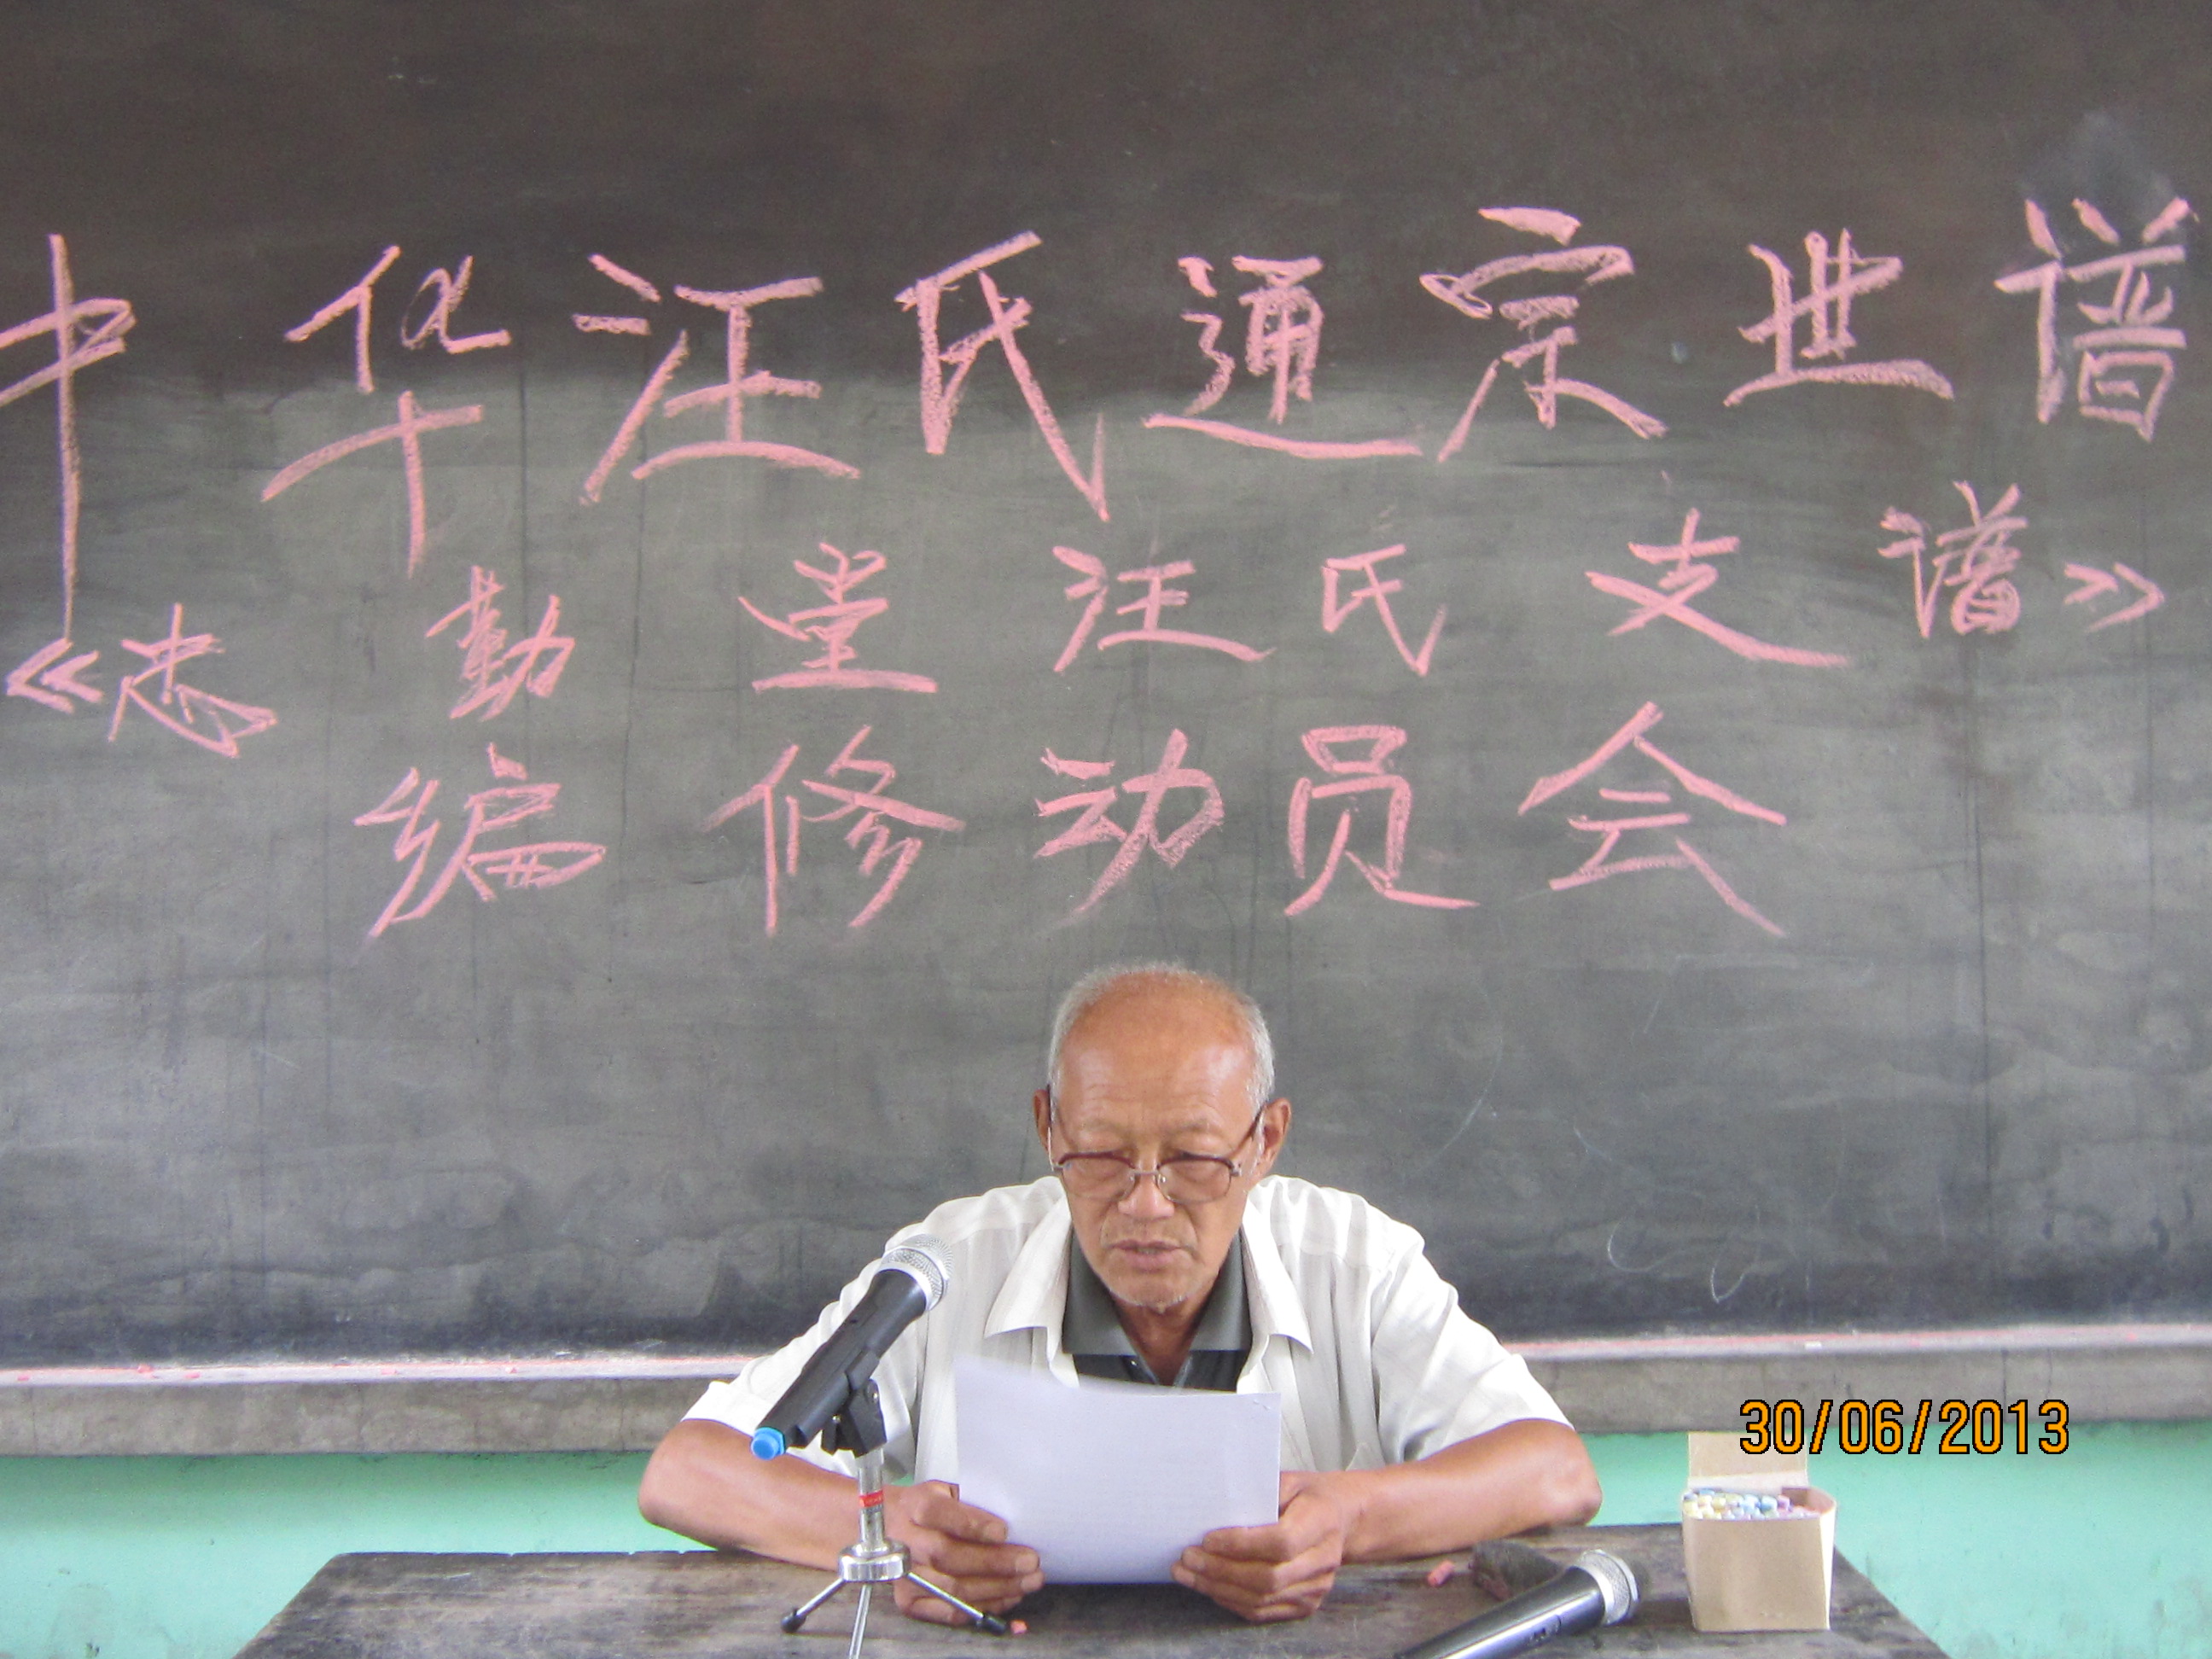 中华汪氏通宗世谱
《忠勤堂汪氏支谱》
编修动员会
30/06/2013